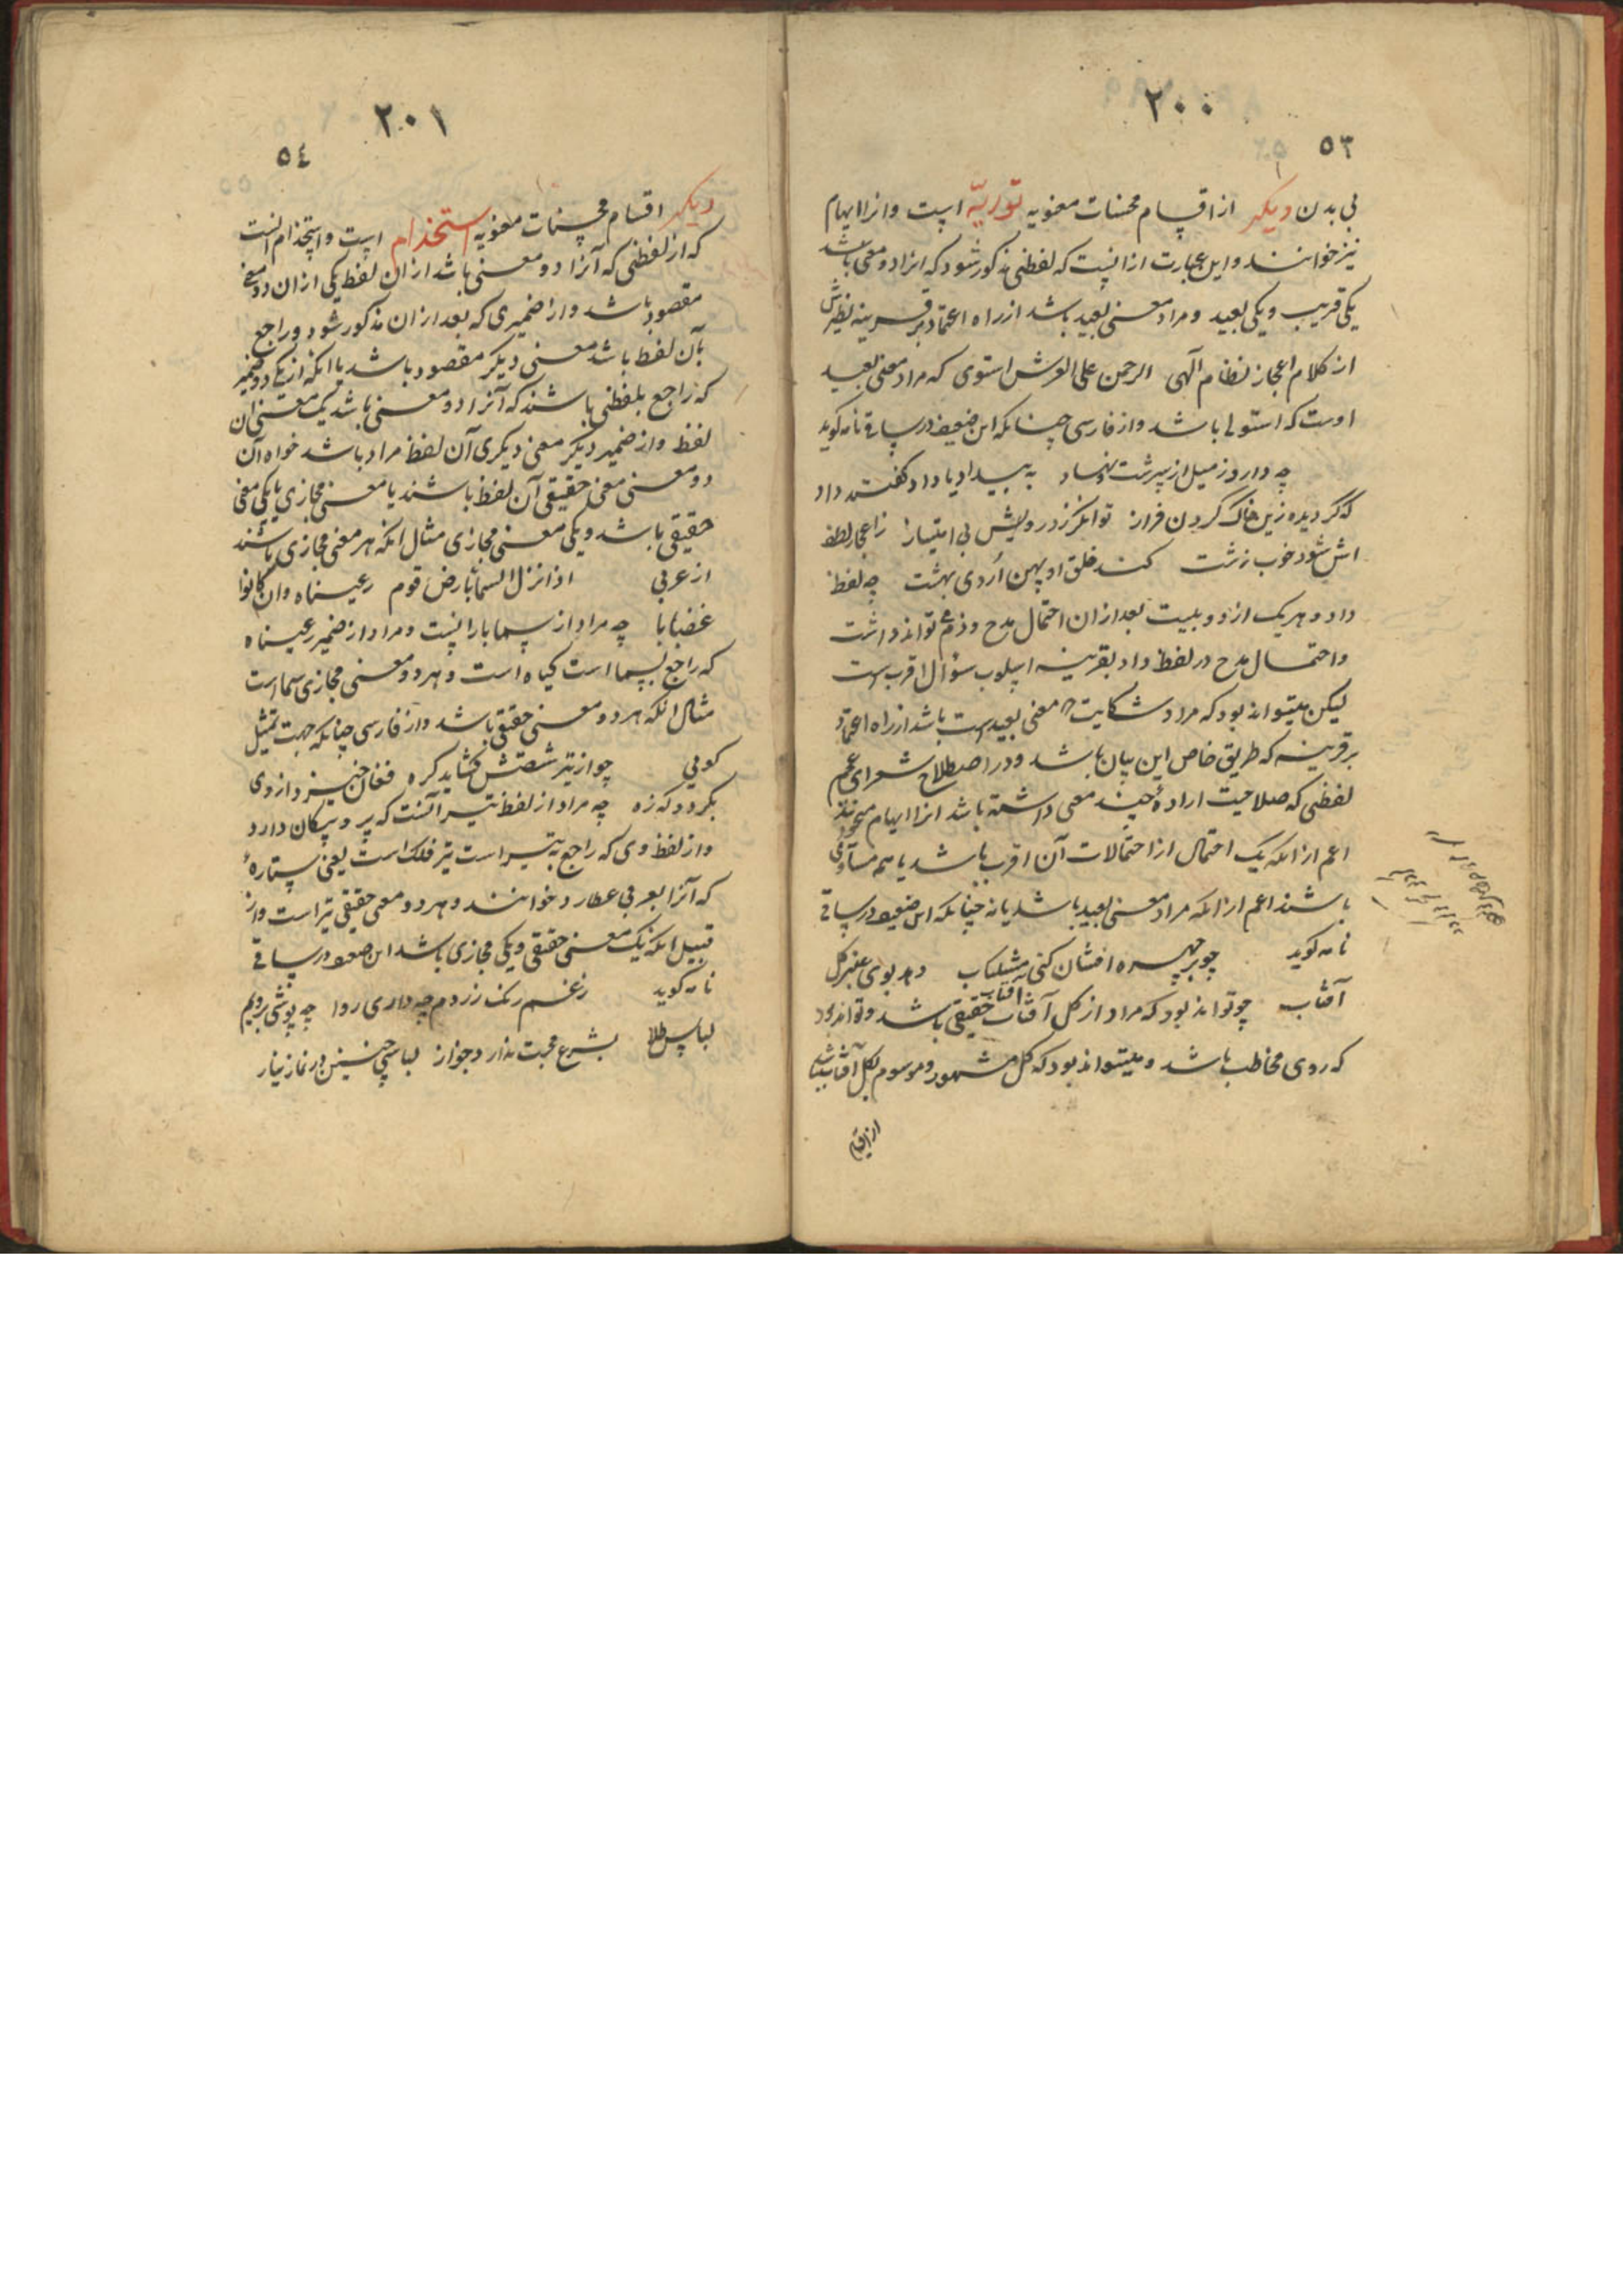 ۲۰۰
۵۳
بی بدن دیگر از اقسام محسنات معنویه توریّه است و انرا ایهام
نیز خوانند و این عبارت از انیست که لفظی مذکور شود که انرا دو معنی باشد
یکی قریب و یکی بعید و مراد معنی بعید باشد از راه اعتماد بر قرینه نظیرش
از کلام اعجاز نظام آلهی الرحمن علی العرش استوی که مراد معنی بعید
اوست که استولی باشد و از فارسی چنانکه این ضعیف در ساقی نامه کوید
چه دارو ز میل از سرشت نهاد به بیداد یا داد کفتند داد
که کردیده زین خاک کردن فراز توانکر ز درویش بی امتیاز ز اعجاز لطف
اش شود خوب زشت کند خلق او پهن اُردی بهشت چه لفظ
داد و هر یک از دو بیت بعد از ان احتمال مدح و ذم تواند داشت
و احتمال مدح در لفظ داد بقرینه اسلوب سؤال اقرب است
لیکن میتواند بود که مراد شکایت معنی بعید است باشد از راه اعتماد
بر قرینه که طریق خاص این بیان باشد و در اصطلاح شعرای عجم
لفظی که صلاحیت ارادهٔ چند معنی داشته باشد انرا ایهام میخوانند
اعم از انکه یک احتمال از احتمالات آن اقرب باشد یا همه مساوی
باشند اعم از انکه مراد معنی بعید باشد یا نه چنانکه این ضعیف در ساقی
نامه کوید چو بر چهره افشان کنی مشکناب دهد بوی عنبر کل
آفتاب چو تواند بود که مراد از کل آفتاب آفتاب حقیقی باشد و تواند بود
که روی مخاطب باشد و میتواند بود که کل مشهور و موسوم بکل آفتاب باشد
از اقسام
۲۰۱
۵٤
دیگر اقسام محسنات معنویه استخدام است و استخدام انست
که از لفظی که آنرا دو معنی باشد از ان لفظ یکی از ان دو معنی
مقصود باشد و از ضمیری که بعد از ان مذکور شود و راجع
بآن لفظ باشد معنی دیکر مقصود باشد یا انکه از یک دو ضمیر
که راجع بلفظی باشند که آنرا دو معنی باشد یک معنی ان
لفظ و از ضمیر دیکر معنی دیکری آن لفظ مراد باشد خواه آن
دو معنی معنی حقیقی آن لفظ باشند یا معنی مجازی یا یکی معنی
حقیقی باشد و یکی معنی مجازی مثال انکه هر معنی مجازی باشند
از عربی اذا نزل السماء بارض قوم رعیناه وان کانوا
غضابا چه مراد از سما بارانست و مراد از ضمیر رعیناه
که راجع بسما است کیاه است و هر دو معنی مجازی سما است
مثال انکه هر دو معنی حقیقی باشد و از فارسی چنانکه جهت تمثیل
کوئی چو از تیر شستش کشاید کره فغان خیزد از وی
بکردد که زه چه مراد از لفظ تیر آنست که پر و پیکان دارد
و از لفظ وی که راجع به تیر است تیر فلک است یعنی ستارهٔ
که آنرا بعربی عطارد خوانند و هر دو معنی حقیقی تیر است و از
قبیل انکه یک معنی حقیقی و یکی مجازی باشد این ضعیف در ساقی
نامه کوید ز غم رنک زردم چه داری روا چه پوشی برویم
لباس طلا بشرع محبت ندارد جواز لباسی چنین در نماز نیاز